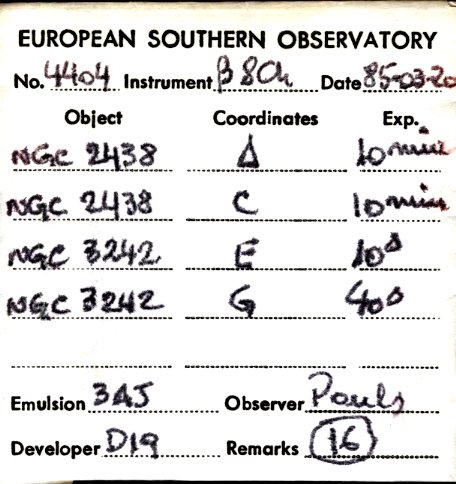 EUROPEAN SOUTHERN OBSERVATORY
No. 4404 Instrument β 80h Date 85-03-20
Object Coordinates Exp.
NGC 2438 A 10 min
NGC 2438 C 10 min
NGC 3242 E 10s
NGC 3242 G 40s
Emulsion 3AJ Observer Pauls
Developer D19 Remarks 16